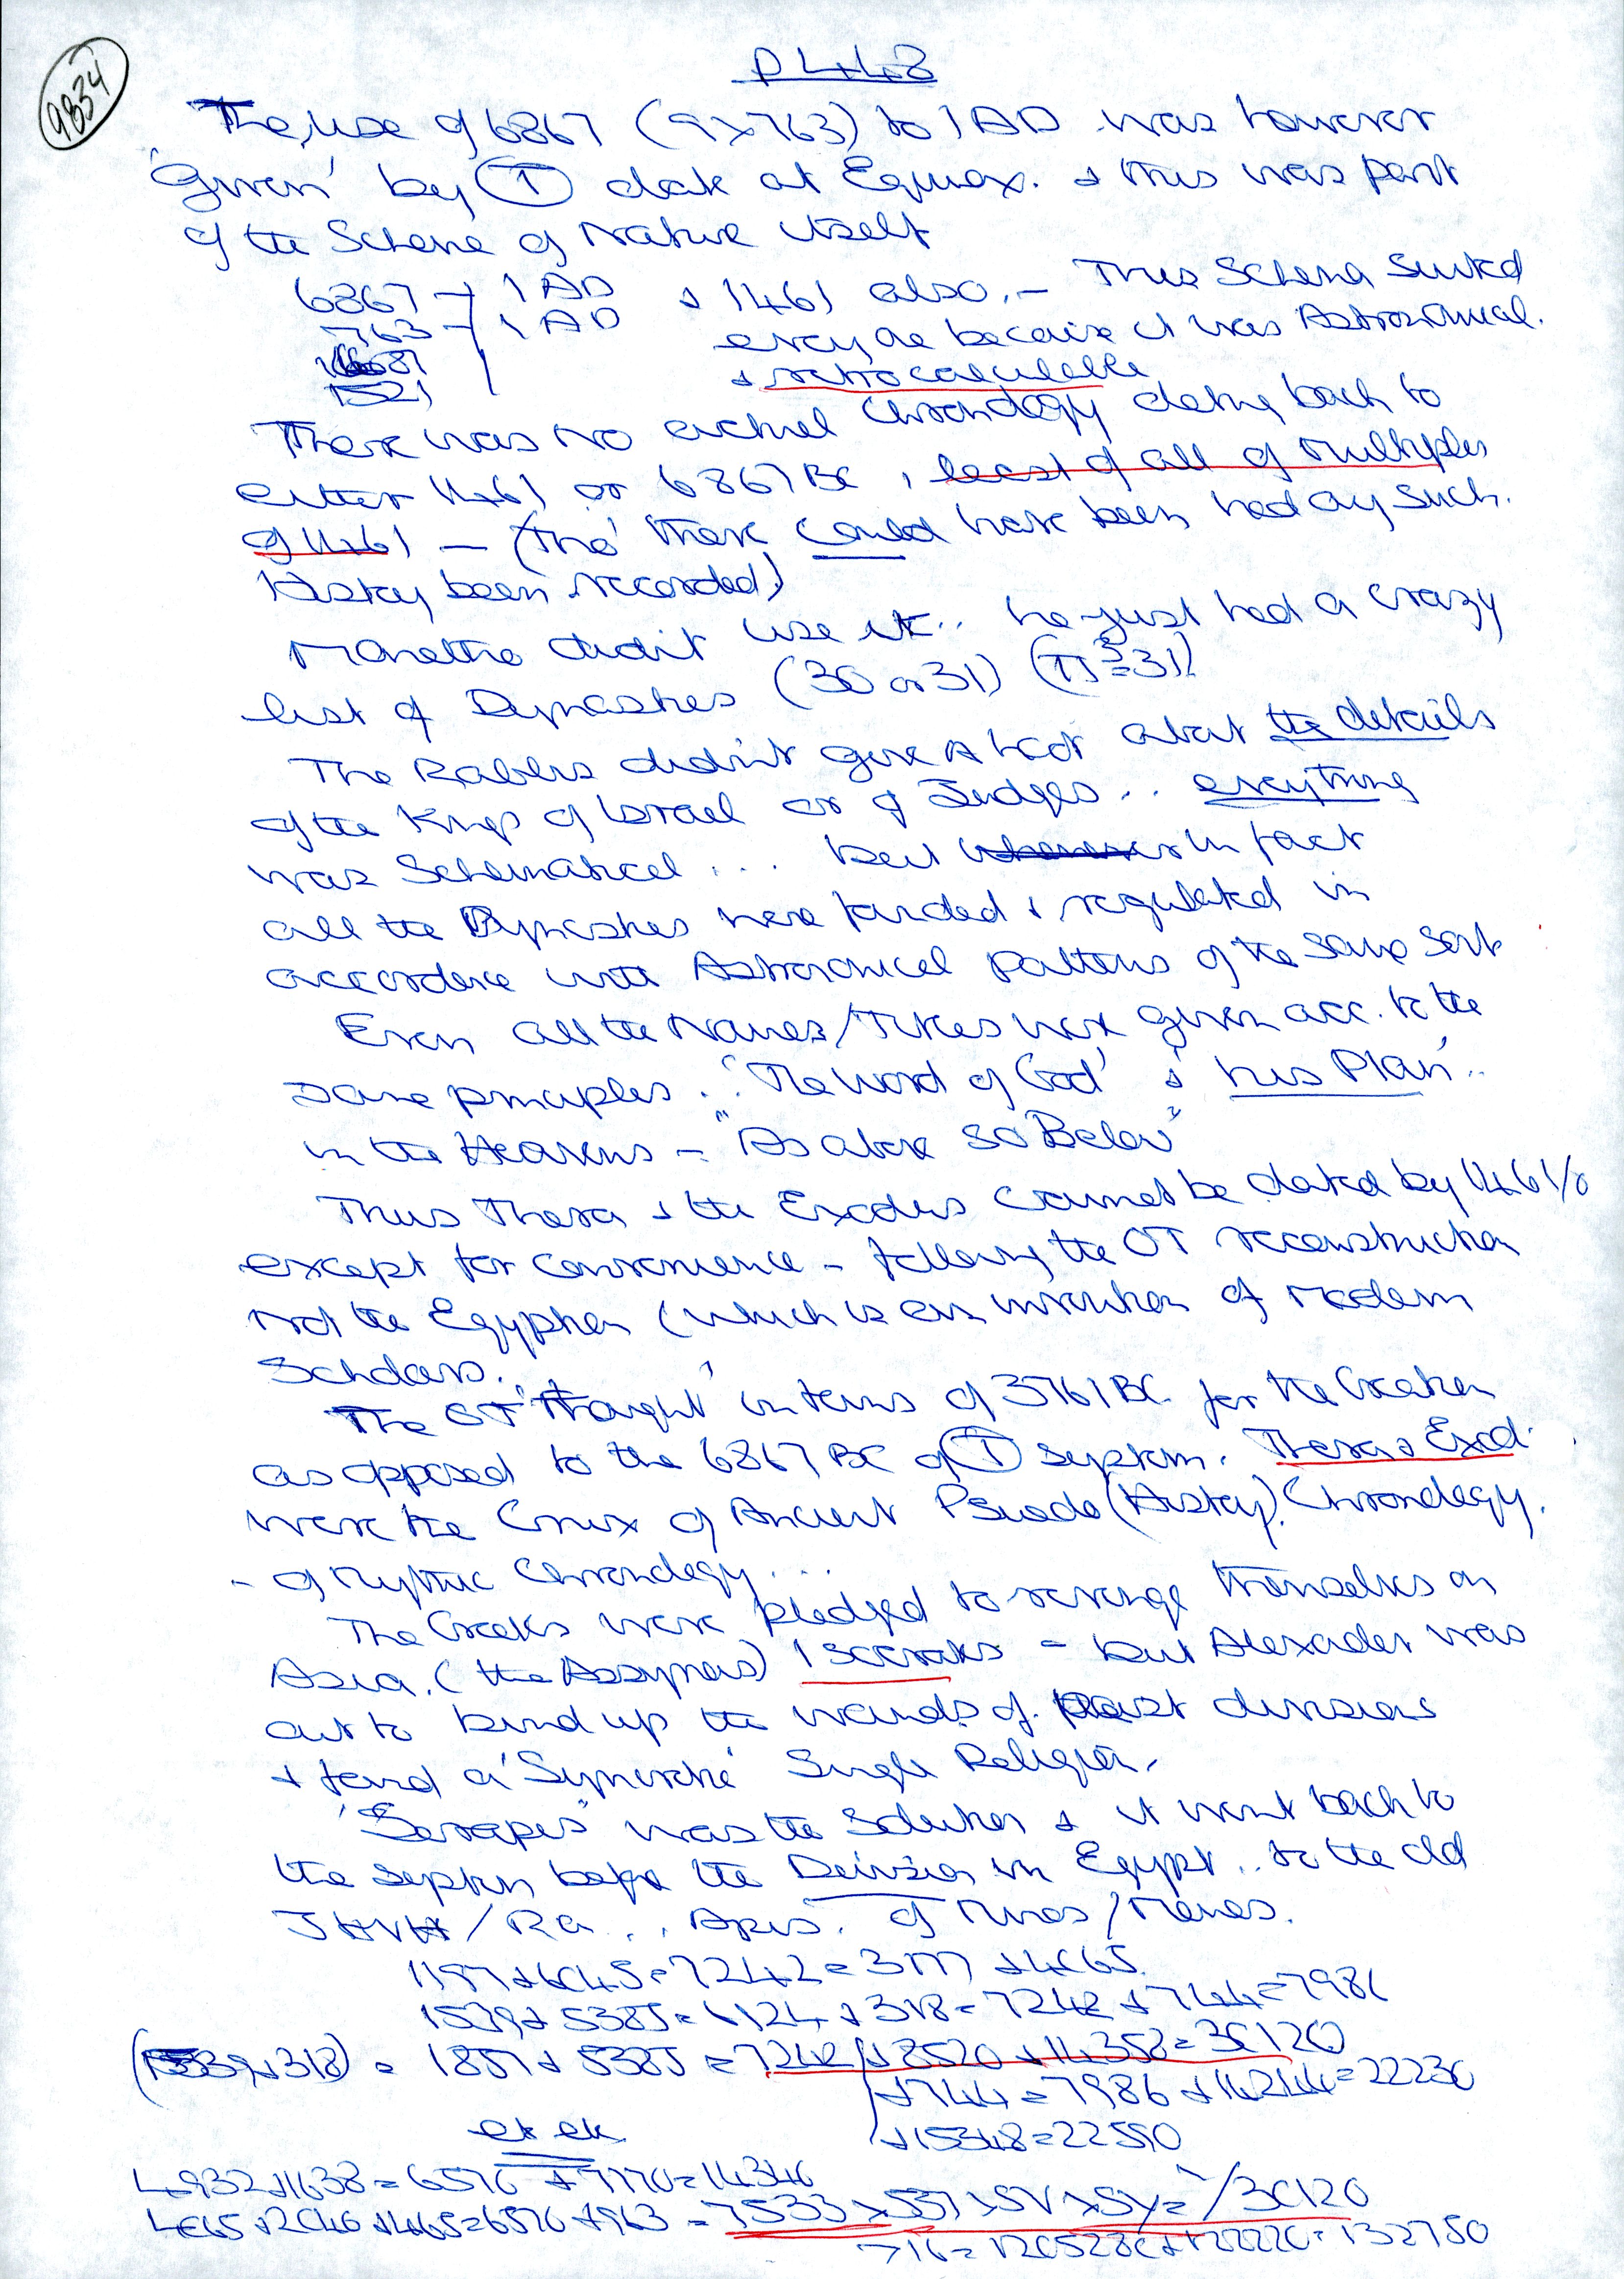 9834
P448
The use of 6867 (9x763) to 1 AD was however
'Given' by (T) date at Equinox. & this was part
of the Scheme of Nature itself
6867 – 1 AD & 1461 also, – This Schema Suited
763 – 1 AD everyone because it was Astronomical.
1521 & retrocalculable
There was NO actual Chronology dating back to
either 1461 or 6867 BC, least of all of multiples
of 1461 — (tho' there could have been had any such
History been recorded)
Manetho didn't use it.. he just had a crazy
list of Dynasties (30 or 31) (π³=31)
The Rabbis didn't give a hoot about the details
of the Kings of Israel or of Judges.. everything
was Schematical ... but in fact
all the Dynasties were founded & regulated in
accordance with Astronomical patterns of the same sort
Even all the Names/Titles were given acc. to the
same principles. 'The Word of God' & his Plan'..
in the Heavens – "As above so Below"
Thus Thera & the Exodus cannot be dated by 1461/0
except for convenience – following the OT reconstruction
not the Egyptian (which is an invention of modern
Scholars.
The OT 'thought' in terms of 3761 BC for the Creation
as opposed to the 6867 BC of (T) system. Thera & Exod.
were the Crux of Ancient Psuedo (History) Chronology.
– of Mythic Chronology...
The Greeks were pledged to revenge themselves on
Asia. (the Assyrians) Isocrates – but Alexander was
out to bind up the wounds of past divisions
& found a 'Syncretic' Single Religion.
'Serapis" was the Solution & it went back to
the system before the Division in Egypt.. to the old
JHVH/Ra .. Apis. of Minos/Menes.
1197+6045=7242=3177+4065
1539+5385= +318=7242+744=7986
(1539+318) = 1857+5385=7242+8520+14358=30120
+744=7986+14244=22230
+15348=22590
4932+1638=6570+7770=14340
4065+2040+465=6570+963=7533x537x5Vx5y=/30120